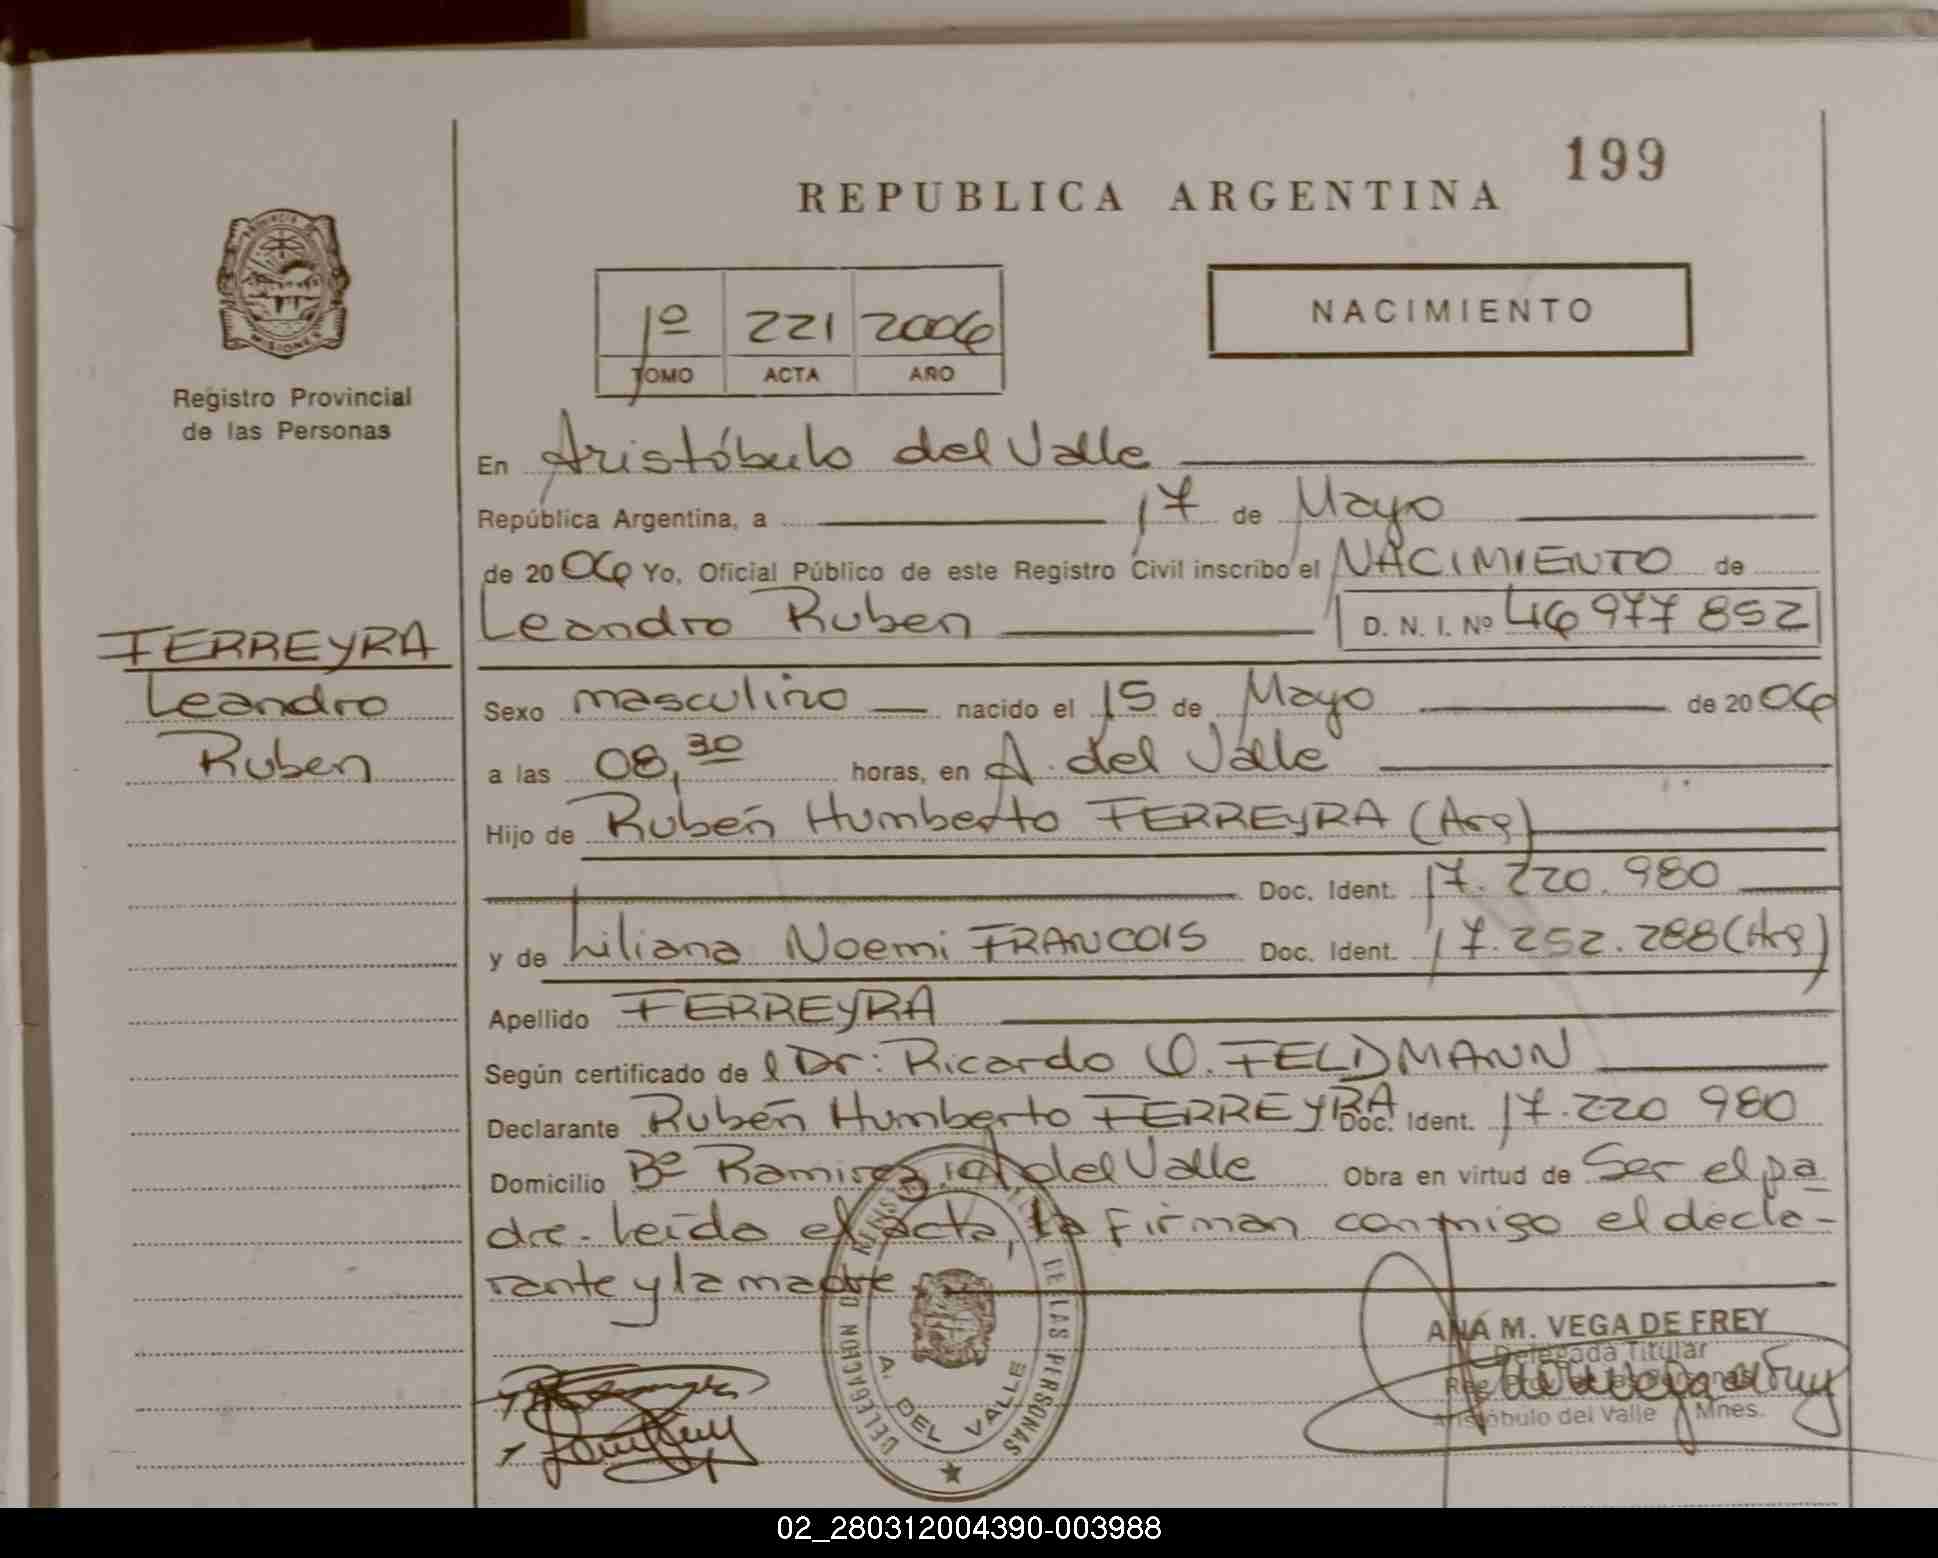 199
REPUBLICA ARGENTINA
PROVINCIA
MISIONES
Registro Provincial
de las Personas
1º 221 2006
TOMO ACTA AÑO
NACIMIENTO
En Aristóbulo del Valle
República Argentina, a 17 de Mayo
de 2006 Yo, Oficial Público de este Registro Civil inscribo el NACIMIENTO de
Leandro Ruben D. N. I. Nº 46 977 852
FERREYRA
Leandro
Ruben
Sexo masculino nacido el 15 de Mayo de 2006
a las 08,30 horas, en A. del Valle
Hijo de Rubén Humberto FERREYRA (Arg)
Doc. Ident. 17.220.980
y de Liliana Noemi FRANCOIS Doc. Ident. 17.252.288 (Arg)
Apellido FERREYRA
Según certificado de l Dr: Ricardo O. FELDMANN
Declarante Rubén Humberto FERREYRA Doc. Ident. 17.220 980
Domicilio Bº Ramirez A del Valle Obra en virtud de Ser el pa
dre. Leída el acta, la firman conmigo el decla-
rante y la madre
DE LAS PERSONAS
DELEGACION
A. DEL VALLE
ANA M. VEGA DE FREY
Delegada Titular
Aristóbulo del Valle Mnes.
02_280312004390-003988